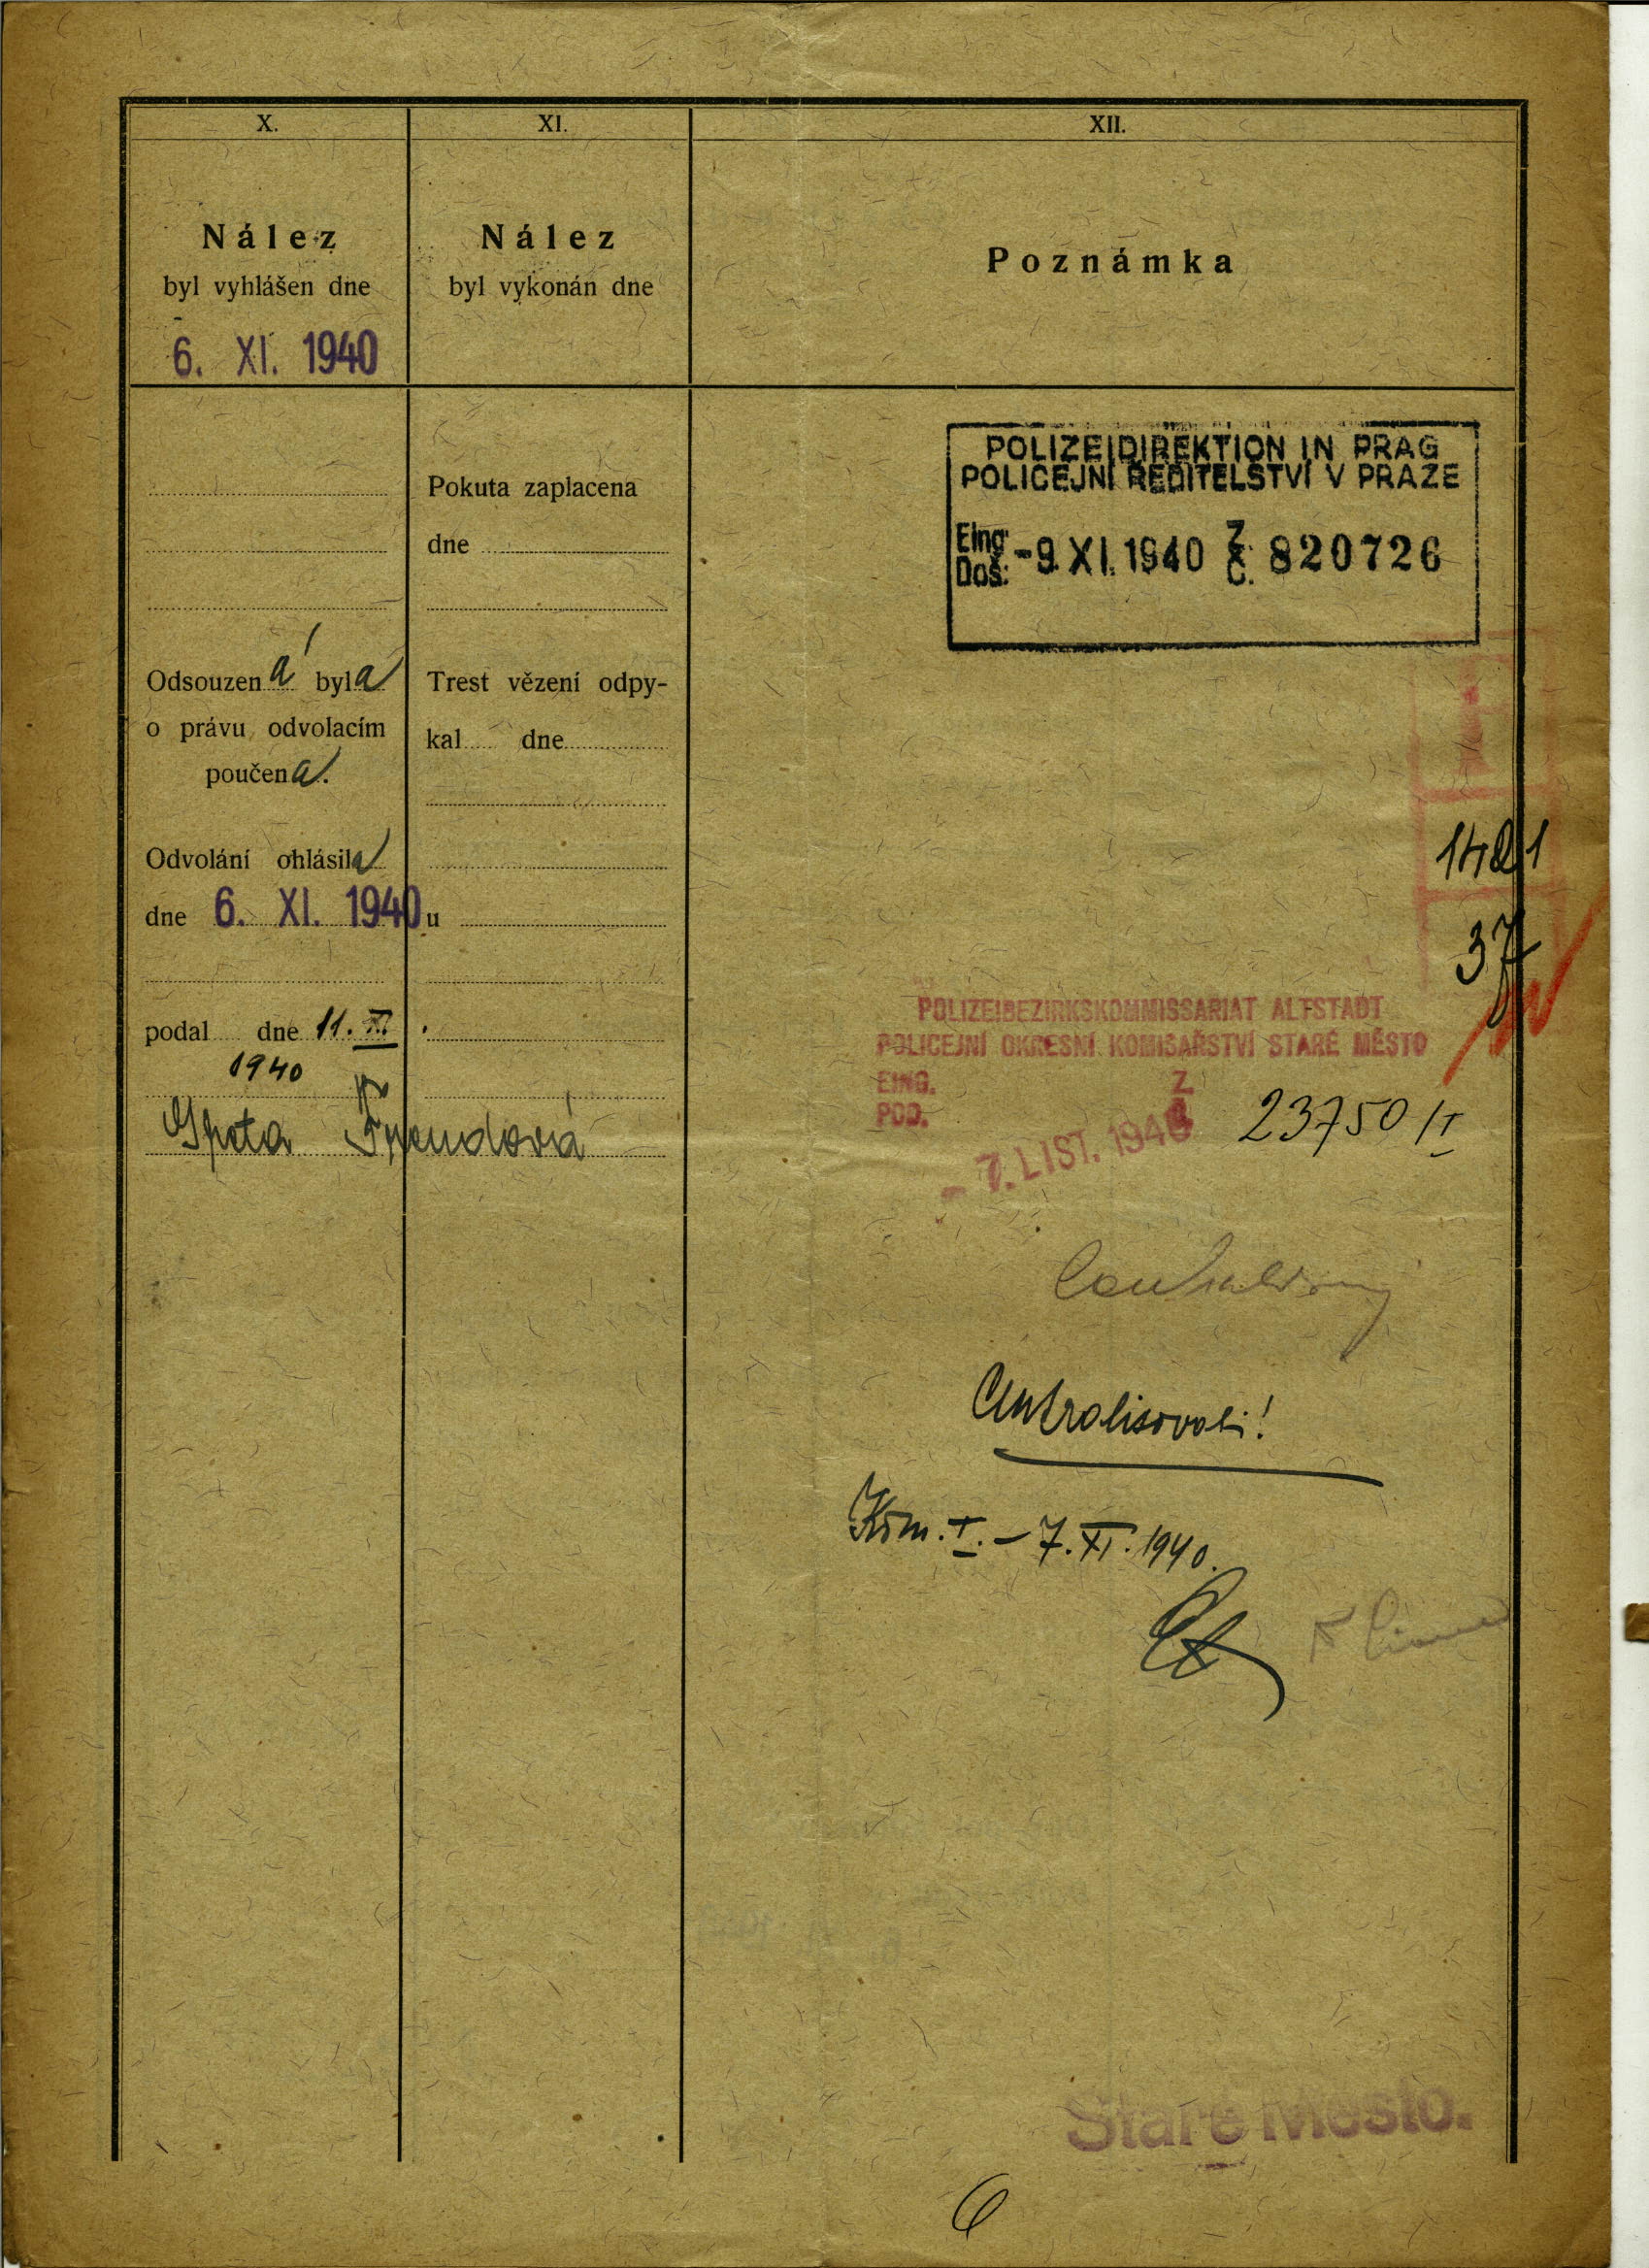 X.
Nález
byl vyhlášen dne
6. XI. 1940
Odsouzená byla
o právu odvolacím
poučena.
Odvolání ohlásila
dne 6. XI. 1940
podal dne 11. XI.
1940
XI.
Nález
byl vykonán dne
Pokuta zaplacena
dne
Trest vězení odpy-
kal dne
u
XII.
Poznámka
POLIZEIDIREKTION IN PRAG
POLICEJNÍ ŘEDITELSTVÍ V PRAZE
Eing: Doš: -9. XI. 1940 Z. Č. 820726
1421
37
POLIZEIBEZIRKSKOMMISSARIAT ALTSTADT
POLICEJNÍ OKRESNÍ KOMISAŘSTVÍ STARÉ MĚSTO
EING. Z.
POD. Č.
- 7. LIST. 1940 23750/I
Centralisovati!
Kom. I. - 7. XI. 1940.
Staré Město.